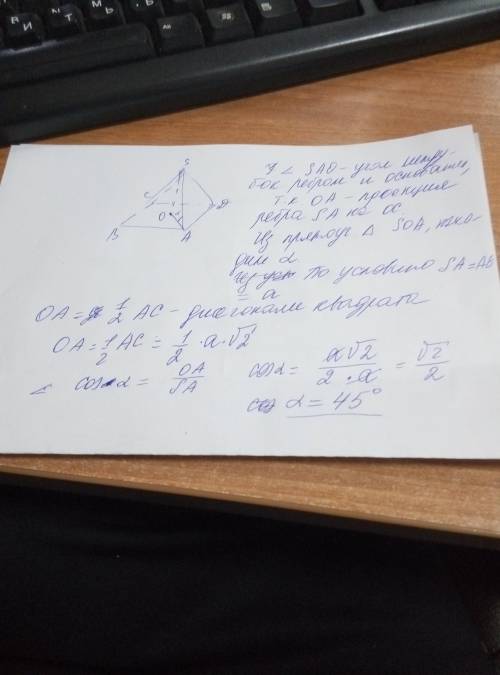 S
C
D
O
B
A
∠ SAO - угол между
бок ребром и основанием,
т.к OA - проекция
ребра SA на α.
Из прямоуг Δ SOA, нахо-
дим α
По условию SA=AB
= a
OA = 1/2 AC - диагонали квадрата
OA = 1/2 AC = 1/2 · a · √2
cos α = OA/SA
cos α = a√2/2·a = √2/2
α = 45°